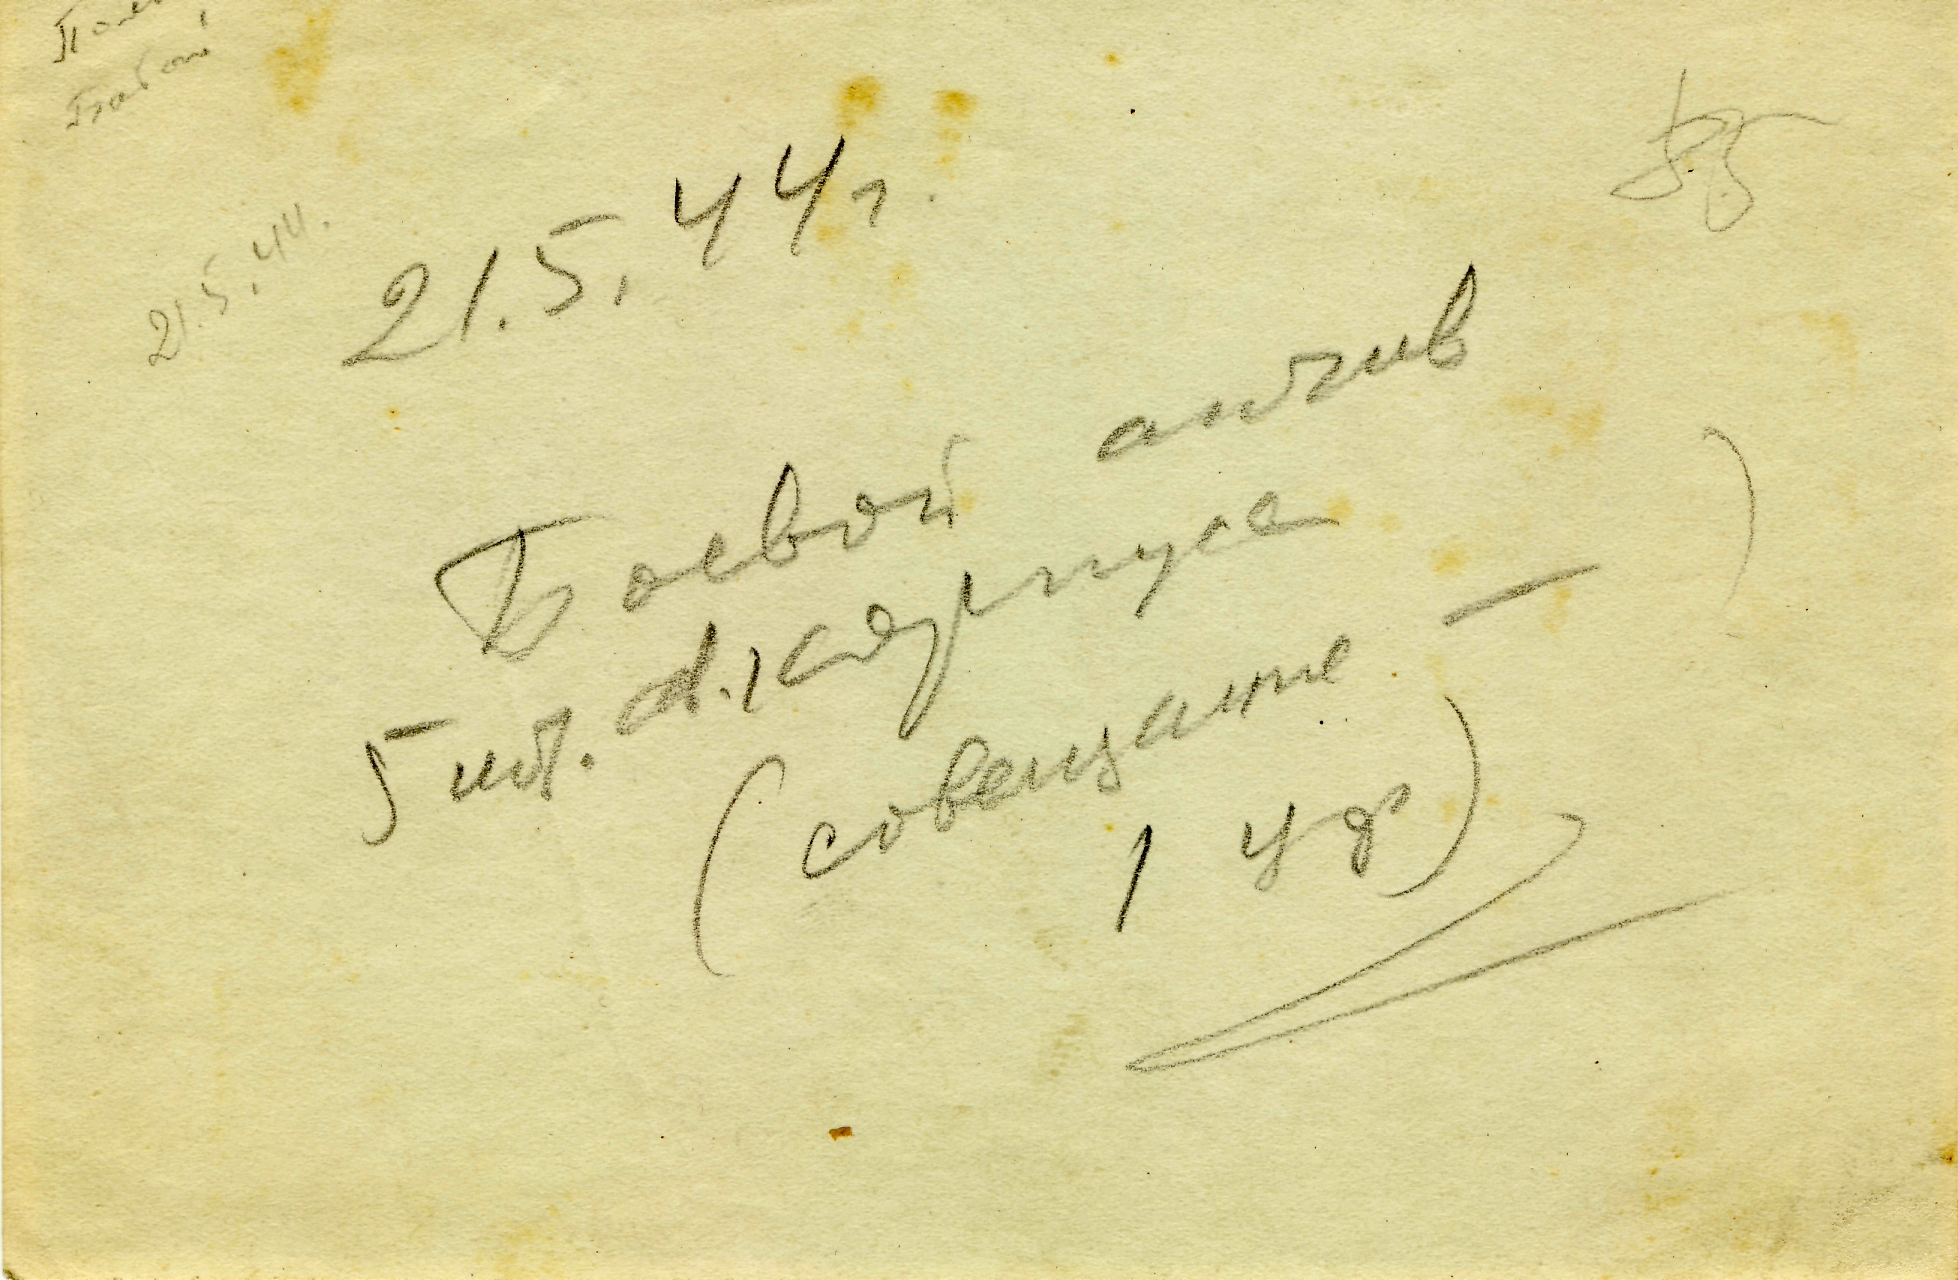 21.5.44.
21.5.44 г.
Боевой актив
5 шт. А. корпуса —
(совещание
1 УФ)